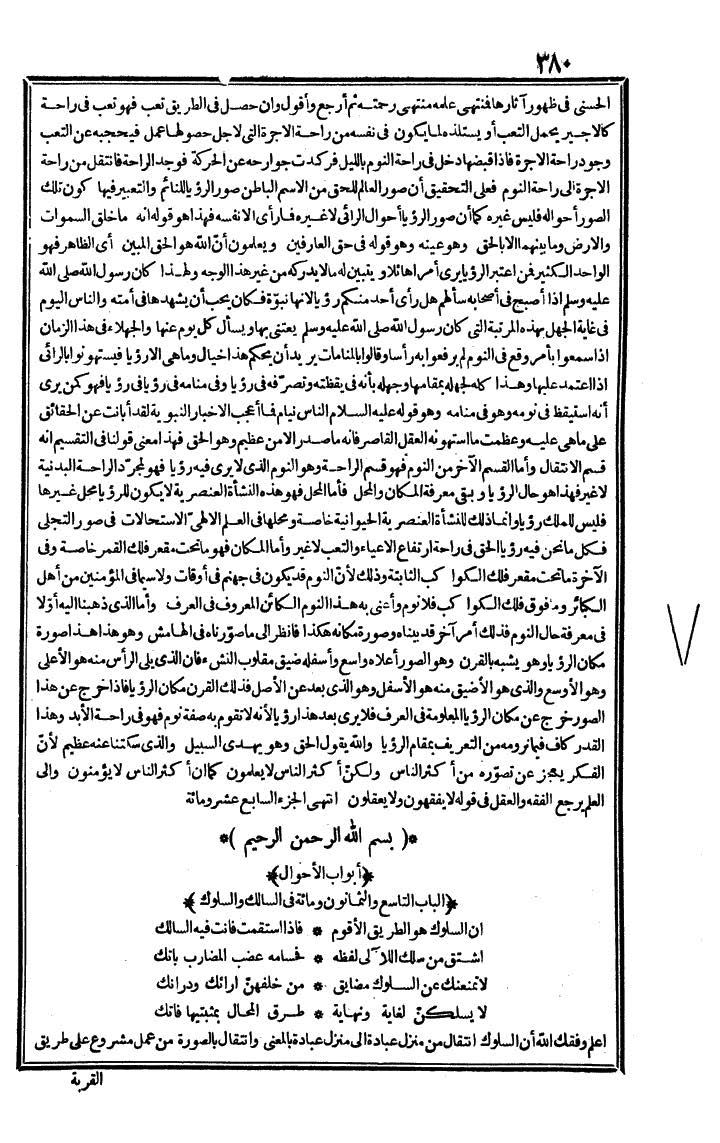 ٣٨٠
الحسنى فى ظهور آثارها فنتهى علمه منتهى رحمته ثم أرجع وأقول وان حصل فى الطريق تعب فهو تعب فى راحة
كالاجير يحمل التعب أو يستلذه لما يكون فى نفسه من راحة الاجرة التى لاجل حصولها عمل فيحجبه عن التعب
وجود راحة الاجرة فاذا قبضها دخل فى راحة النوم بالليل فركدت جوارحه عن الحركة فوجد الراحة فانتقل من راحة
الاجرة الى راحة النوم فعلى التحقيق أن صور العالم للحق من الاسم الباطن صور الرؤيا للنائم والتعبير فيها كون تلك
الصور أحواله فليس غيره كما أن صور الرؤيا أحوال الرائى لا غيره فما رأى الا نفسه فهذا هو قوله انه ما خلق السموات
والارض وما بينهما الا بالحق وهو عينه وهو قوله فى حق العارفين ويعلمون أنّ الله هو الحق المبين أى الظاهر فهو
الواحد الكثير فمن اعتبر الرؤيا يرى أمرا هائلا ويتبين له ما لا يدركه من غير هذا الوجه ولهذا كان رسول الله صلى الله
عليه وسلم اذا أصبح فى أصحابه سألهم هل رأى أحد منكم رؤيا لانها نبوّة فكان يحب أن يشهدها فى أمته والناس اليوم
فى غاية الجهل بهذه المرتبة التى كان رسول الله صلى الله عليه وسلم يعتنى بها ويسأل كل يوم عنها والجهلاء فى هذا الزمان
اذا سمعوا بأمر وقع فى النوم لم يرفعوا به رأسا وقالوا بالمنامات يريد أن يحكم هذا خيال وما هى الا رؤيا فيستهونوا بالرائى
اذا اعتمد عليها وهذا كله لجهله بمقامها وجهله بأنه فى يقظته وتصرّفه فى رؤيا وفى منامه فى رؤيا فى رؤيا فهو كمن يرى
أنه استيقظ فى نومه وهو فى منامه وهو قوله عليه السلام الناس نيام فما أعجب الاخبار النبوية لقد أبانت عن الحقائق
على ماهى عليه وعظمت ما استهونه العقل القاصر فانه ما صدر الا من عظيم وهو الحق فهذا معنى قولنا فى التقسيم انه
قسم الانتقال وأما القسم الآخر من النوم فهو قسم الراحة وهو النوم الذى لا يرى فيه رؤيا فهو لمجرّد الراحة البدنية
لا غير فهذا هو حال الرؤيا وبقى معرفة المكان والمحل فأما المحل فهو هذه النشأة العنصرية لا يكون للرؤيا محل غيرها
فليس للملك رؤيا وانما ذلك للنشأة العنصرية الحيوانية خاصة ومحلها فى العلم الالهىّ الاستحالات فى صور التجلى
فكل ما نحن فيه رؤيا الحق فى راحة ارتفاع الاعياء والتعب لا غير وأما المكان فهو ما تحت مقعر فلك القمر خاصة وفى
الآخرة ما تحت مقعر فلك الكواكب الثابتة وذلك لأنّ النوم قد يكون فى جهنم فى أوقات ولا سيما فى المؤمنين من أهل
الكبائر وما فوق فلك الكواكب فلا نوم وأعنى به هذا النوم الكائن المعروف فى العرف وأما الذى ذهبنا اليه أوّلا
فى معرفة حال النوم فذلك أمر آخر قد بيناه وصورة مكانه هكذا فانظر الى ما صوّرناه فى الهامش وهو هذا هذا صورة
مكان الرؤيا وهو يشبه بالقرن وهو الصور أعلاه واسع وأسفله ضيق مقلوب النشء فان الذى يلى الرأس منه هو الأعلى
وهو الأوسع والذى هو الأضيق منه هو الأسفل وهو الذى بعد عن الأصل فذلك القرن مكان الرؤيا فاذا خرج عن هذا
الصور خرج عن مكان الرؤيا المعلومة فى العرف فلا يرى بعد هذا رؤيا لأنه لا تقوم به صفة نوم فهو فى راحة الأبد وهذا
القدر كاف فيما نرومه من التعريف بمقام الرؤيا والله يقول الحق وهو يهدى السبيل والذى سكتنا عنه عظيم لأنّ
الفكر يعجز عن تصوّره من أكثر الناس ولكنّ أكثر الناس لا يعلمون كما ان أكثر الناس لا يؤمنون والى
العلم يرجع الفقه والعقل فى قوله لا يفقهون ولا يعقلون انتهى الجزء السابع عشر ومائة
*( بسم الله الرحمن الرحيم )*
﴿أبواب الأحوال﴾
﴿الباب التاسع والثمانون ومائة فى السالك والسلوك﴾
ان السلوك هو الطريق الأقوم * فاذا استقمت فانت فيه السالك
اشتق من سلك اللآلى لفظه * فحسامه عضب المضارب باتك
لا تمنعنك عن السلوك مضايق * من خلفهنّ ارائك ودرانك
لا يسلكنّ لغاية ونهاية * طرق المحال بمثبتيها فاتك
اعلم وفقك الله أن السلوك انتقال من منزل عبادة الى منزل عبادة بالمعنى وانتقال بالصورة من عمل مشروع على طريق
القربة